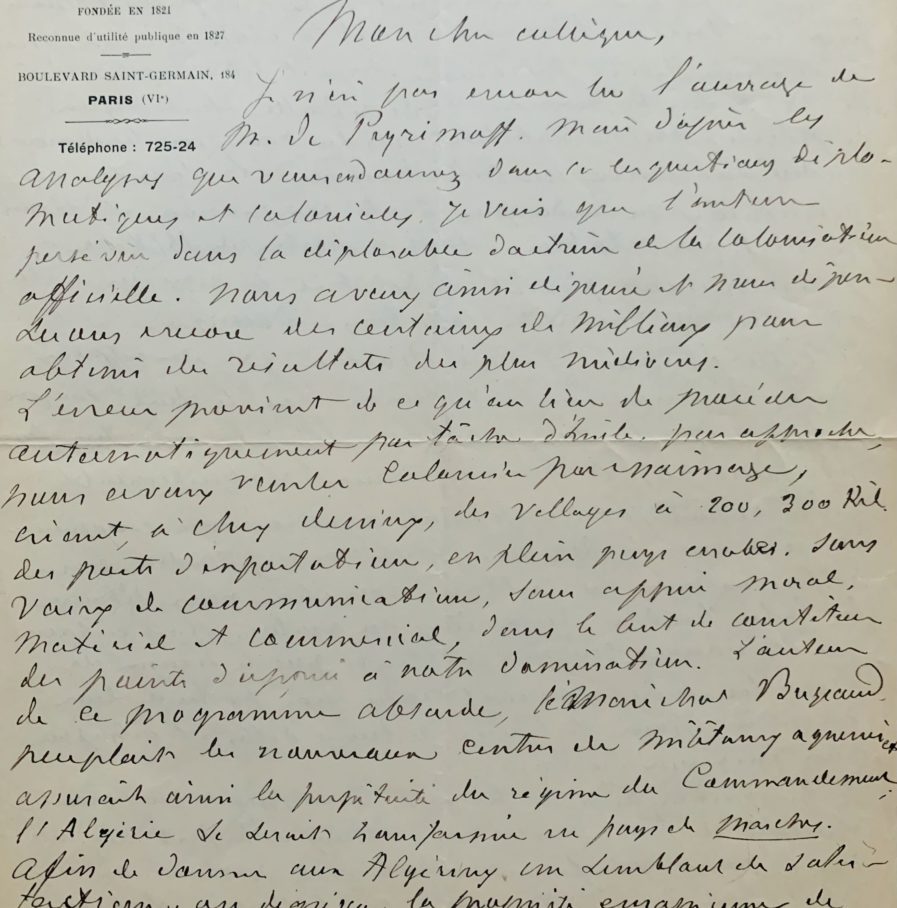 FONDÉE EN 1821
Reconnue d'utilité publique en 1827
BOULEVARD SAINT-GERMAIN, 184
PARIS (VIe)
Téléphone : 725-24
Mon cher collègue,
Je n'ai pas encore lu l'ouvrage de
M. de Peyrimoff. Mais d'après les
analyses que vous en donnez dans les questions diplo-
matiques et coloniales, je vois que l'auteur
persévère dans la déplorable doctrine de la colonisation
officielle. Nous avons ainsi dépensé et nous dépen-
serons encore des centaines de millions pour
obtenir des résultats des plus médiocres.
L'erreur provient de ce qu'au lieu de procéder
automatiquement par tâche d'huile, par approche,
nous avons voulu coloniser par essaimage,
créant, à , des villages à 200, 300 Kil.
des ports d'importation, en plein pays arabe, sans
voies de communication, sans appui moral,
matériel et commercial, dans le but de constituer
des points d'appui à notre domination. L'auteur
de ce programme absurde, le Maréchal Bugeaud,
peuplait les nouveaux centres de militaires aguerris et
assurait ainsi la perpétuité du régime du Commandement,
l'Algérie se serait transformée en pays de Marches.
Afin de donner aux Algériens un semblant de satis-
faction, on , la européenne de